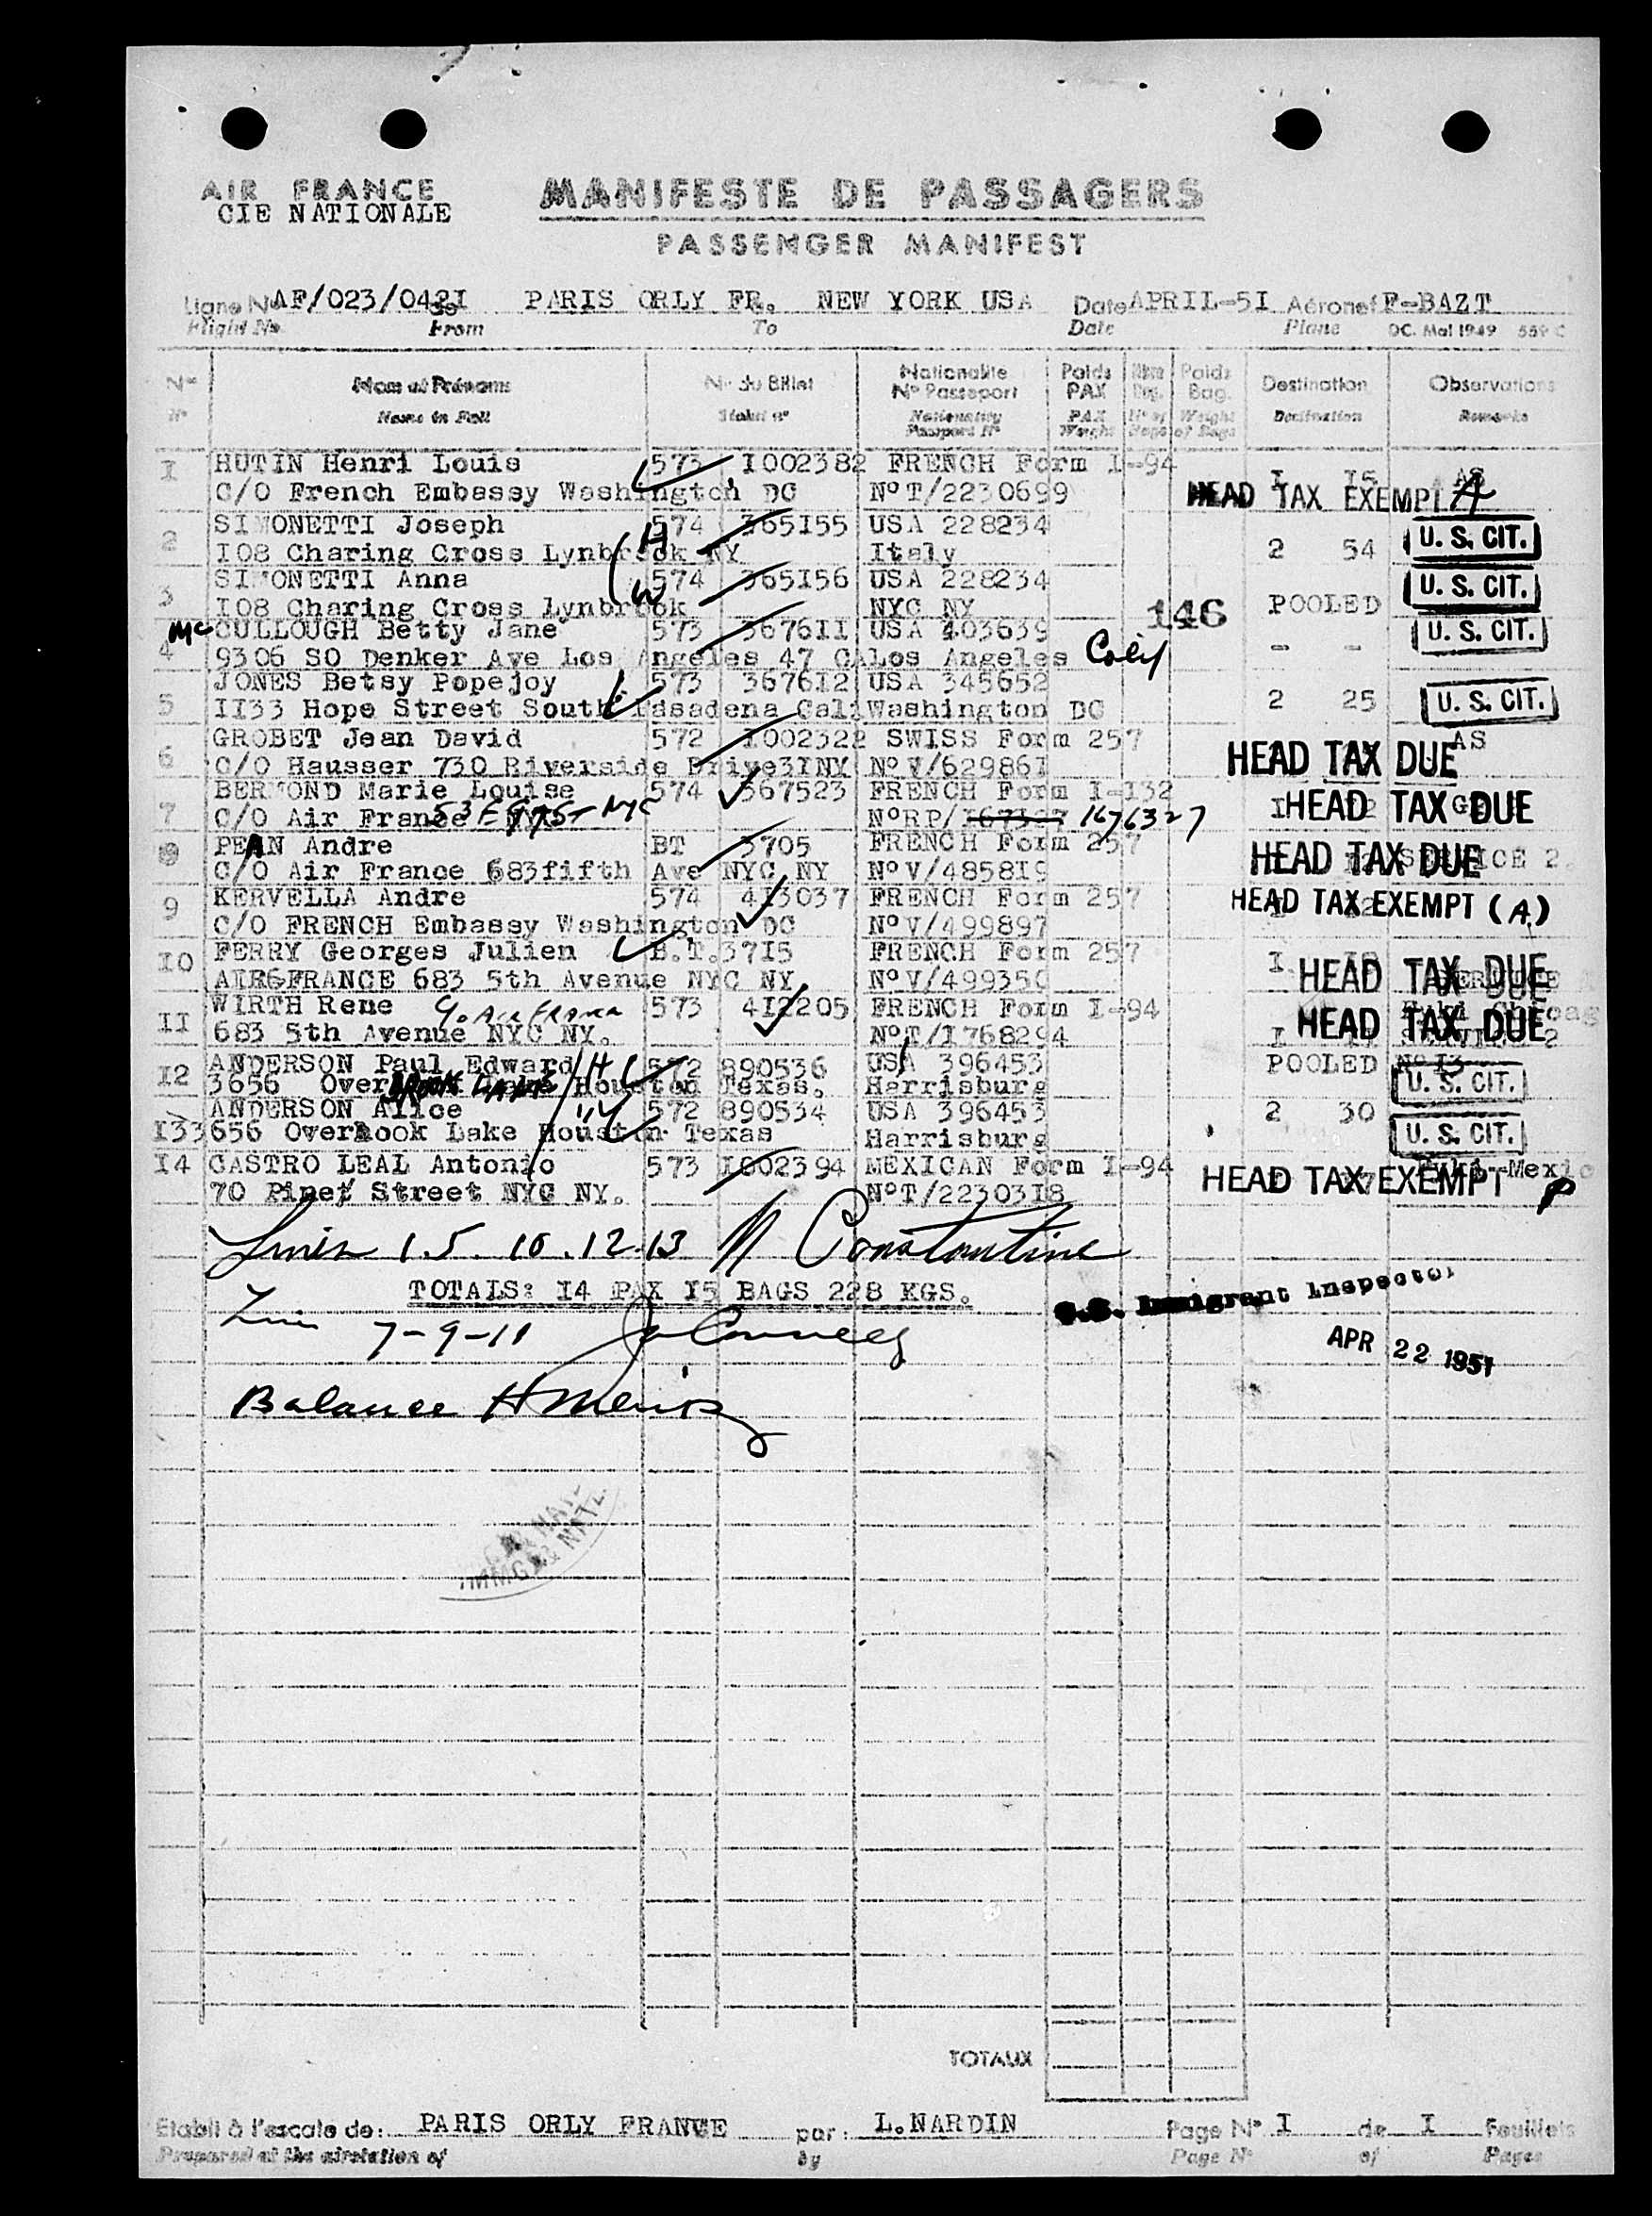 AIR FRANCE
CIE NATIONALE
MANIFESTE DE PASSAGERS
PASSENGER MANIFEST
Ligne No AF/023/042I de PARIS ORLY FR. NEW YORK USA Date APRIL-5I Aéronef F-BAZT
Flight No. From To Date Plane OC. Mai 1949 559 C
No Nom et Prénoms No du Billet Nationalité No Passeport Poids PAX Nbre Bag. Poids Bag. Destination Observations
No Name in Full Ticket no Nationality Passport No PAX Weight No of Bags Weight of Bags Destination Remarks
I HUTIN Henri Louis 573 I002382 FRENCH Form I-94
C/O French Embassy Washington DC No T/2230699 I I5 AS
HEAD TAX EXEMPT A
2 SIMONETTI Joseph H 574 365I55 USA 228234
I08 Charing Cross Lynbrook NY Italy 2 54 U. S. CIT.
3 SIMONETTI Anna W 574 365I56 USA 228234
I08 Charing Cross lynbrook NYC NY 146 POOLED U. S. CIT.
4 Mc CULLOUGH Betty Jane 573 3676II USA 403639
9306 SO Denker Ave Los Angeles 47 CA Los Angeles Calif - - U. S. CIT.
5 JONES Betsy Popejoy 573 3676I2 USA 345652
II33 Hope Street South Pasadena Cali Washington DC 2 25 U. S. CIT.
6 GROBET Jean David 572 I002322 SWISS Form 257
C/O Hausser 730 Riverside Drive3INY No V/62986I HEAD TAX DUE AS
7 BERMOND Marie Louise 574 367523 FRENCH Form I-I32
C/O Air France NYC 53 E 97 ST NYC No RP/ 1676327 I HEAD TAX DUE
8 PEAN Andre BT 3705 FRENCH Form 257
C/O Air France 683fifth Ave NYC NY No V/4858I9 HEAD TAX DUE SERVICE 2.
9 KERVELLA Andre 574 4I3037 FRENCH Form 257
C/O FRENCH Embassy Washington DC No V/499897 HEAD TAX EXEMPT (A)
I0 FERRY Georges Julien B.T. 37I5 FRENCH Form 257
AIR FRANCE 683 5th Avenue NYC NY No V/499359 I HEAD TAX DUE
II WIRTH Rene C/o AIR FRANCE 573 4I2205 FRENCH Form I-94
683 5th Avenue NYC NY. No T/I768294 I HEAD TAX DUE
I2 ANDERSON Paul Edward H 572 890536 USA 396453 POOLED No I3
3656 Overbrook Lane Houston Texas. Harrisburg U. S. CIT.
ANDERSON Alice W 572 890534 USA 396453 2 30
I3 3656 Overbook Lake Houston Texas Harrisburg U. S. CIT.
I4 CASTRO LEAL Antonio 573 I002394 MEXICAN Form I-94
70 Pinet Street NYC NY. No T/22303I8 HEAD TAX EXEMPT P
1.5. 10. 12.13 Constantine
TOTALS: I4 PAX I5 BAGS 228 KGS.
U.S. Immigrant Inspector
7-9-11
APR 22 1951
Balance
TOTAUX
Etabli à l'escale de: PARIS ORLY FRANCE par: L.NARDIN Page No I de I Feuillets
Prepared at the airstation of by Page No of Pages